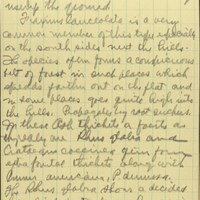 usurp the ground.
Fraxinus lanceolata is a very
common member of this type especially
on the south sides next the hills.
The species often forms a conspicuous
belt of forest in such places which
spreads farther out on the flat and
in some places goes quite high into
the hills. Propagates by root suckers.
In these thickets
are Rhus glabra and
Crataegus coccinea often forming
thickets along with
Prunus americana, P. demissa.
The Rhus glabra shows a decided